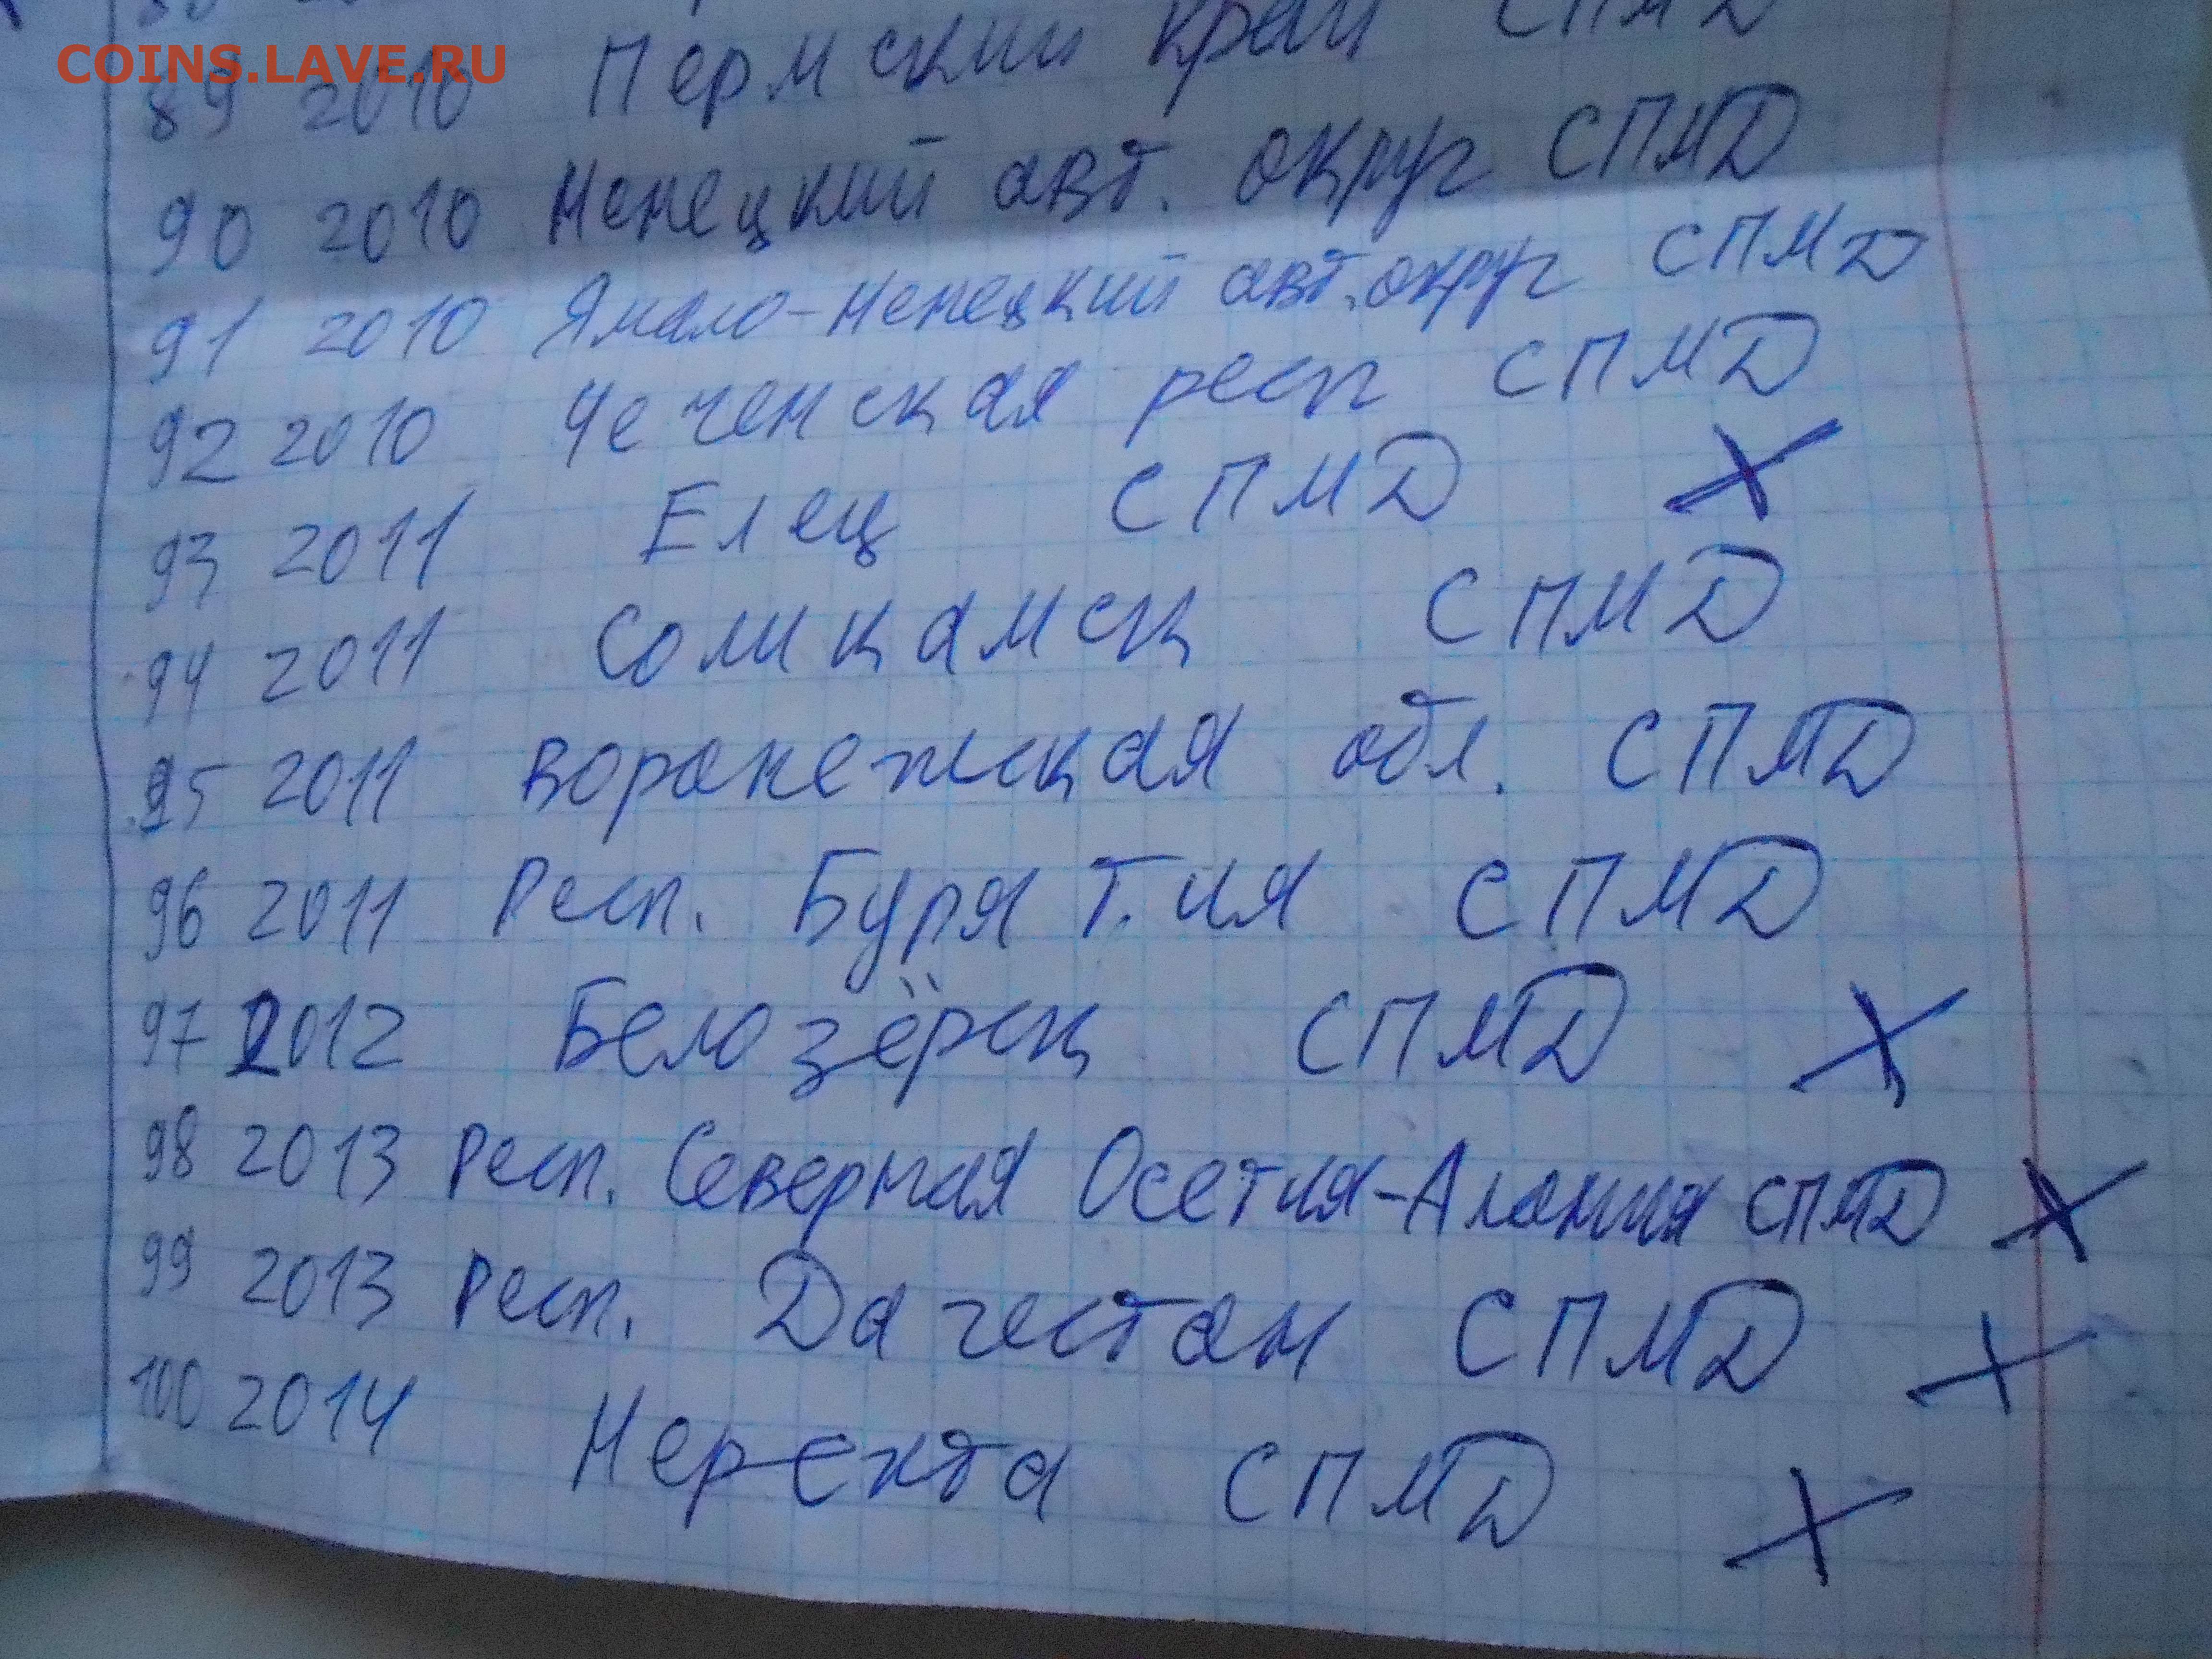 COINS.LAVE.RU
89 2010 Пермский край СПМД
90 2010 Ненецкий авт. округ СПМД
91 2010 Ямало-Ненецкий авт. округ СПМД
92 2010 Чеченская респ СПМД
93 2011 Елец СПМД X
94 2011 Соликамск СПМД
95 2011 Воронежская обл. СПМД
96 2011 Респ. Бурятия СПМД
97 2012 Белозёрск СПМД X
98 2013 Респ. Северная Осетия-Алания СПМД X
99 2013 Респ. Дагестан СПМД X
100 2014 Нерехта СПМД X